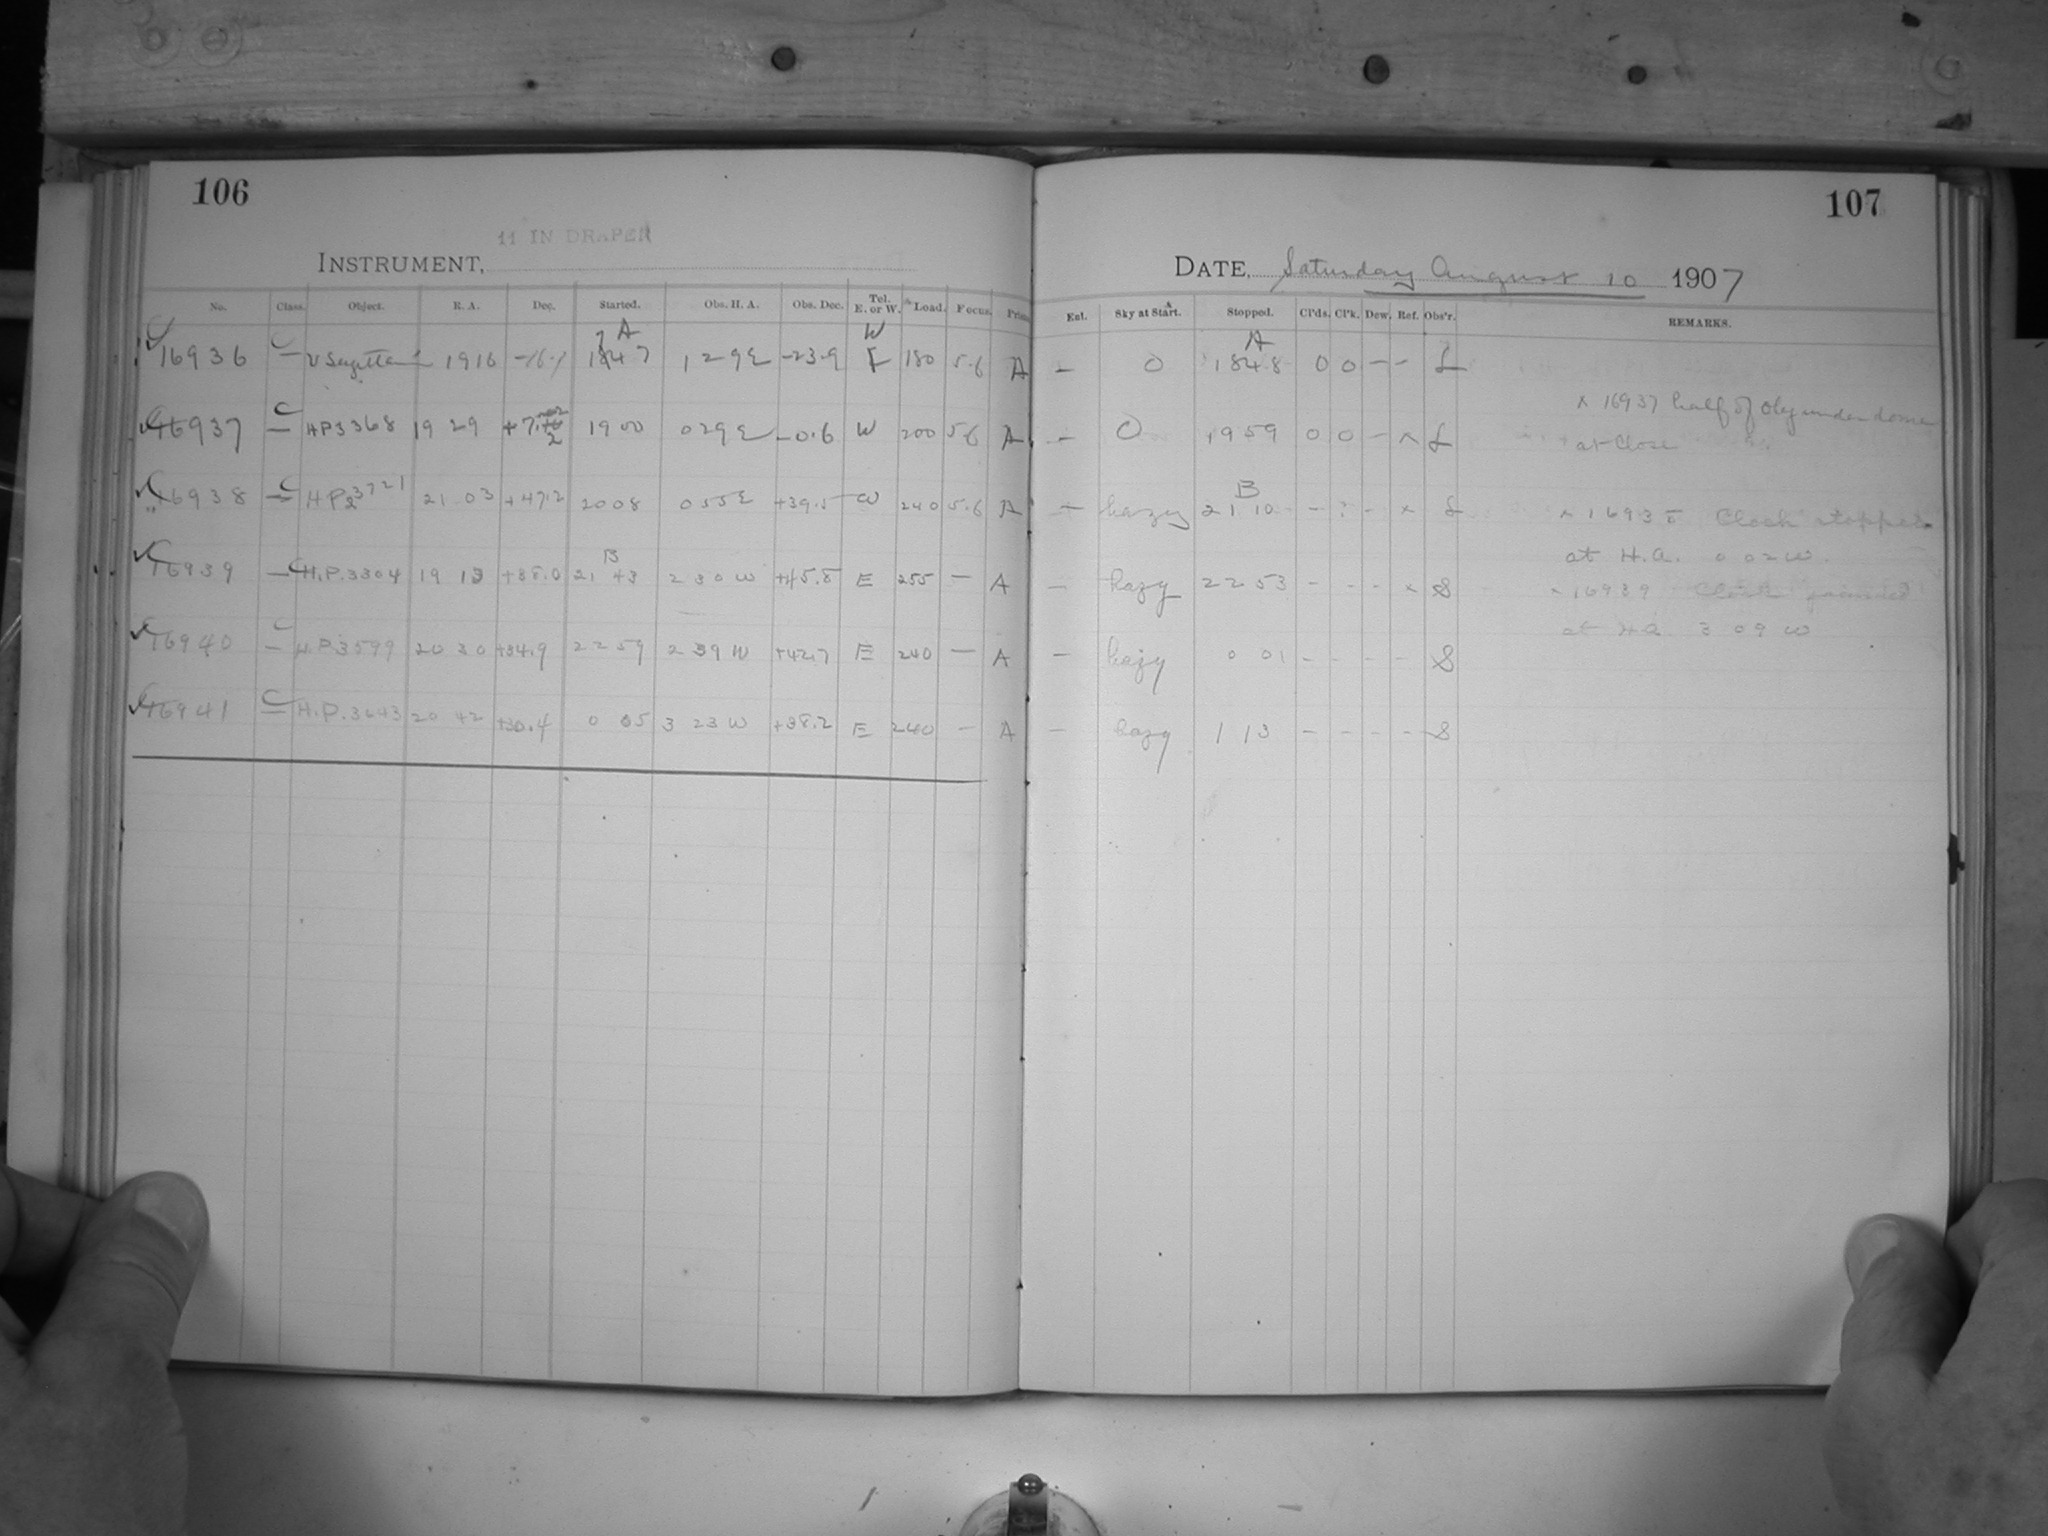 106
11 IN DRAPER
INSTRUMENT,
No. Class. Object. R. A. Dec. Started. Obs. H. A. Obs. Dec. Tel. E. or W. Load. Focus.
A W
16936 C 1916 1847 1 29 E -23.9 180 5.6 A
16937 C HP3368 19 29 1900 0 29 E -0.6 W 200 5.6 A
16938 C HP 3721 21 03 +47.2 2008 0 55 E +39.5 W 240 5.6 A
B
16939 C H.P.3304 19 13 +38.0 21 43 2 30 W +45.8 E 255 - A
16940 C H.P.3599 20 30 +34.9 2259 2 39 W +42.7 E 240 - A
16941 C H.P.3643 20 42 +30.4 0 05 3 23 W +38.2 E 240 - A
107
DATE, Saturday August 10 1907
Ent. Sky at Start. Stopped. Cl'ds. Cl'k. Dew. Ref. Obs'r. REMARKS.
A
- 0 1848 0 0 - - L
- 0 1959 0 0 - x L
B
- hazy 21 10 - ? - x L
- hazy 22 53 - - - x S
- hazy 0 01 - - - - S
- hazy 1 13 - - - - S
x 16937 half of Obj under dome
at close
x 16938 Clock stopped
at H.A. 0 02 W.
x 16939 Clock
at H.A. 3 09 W